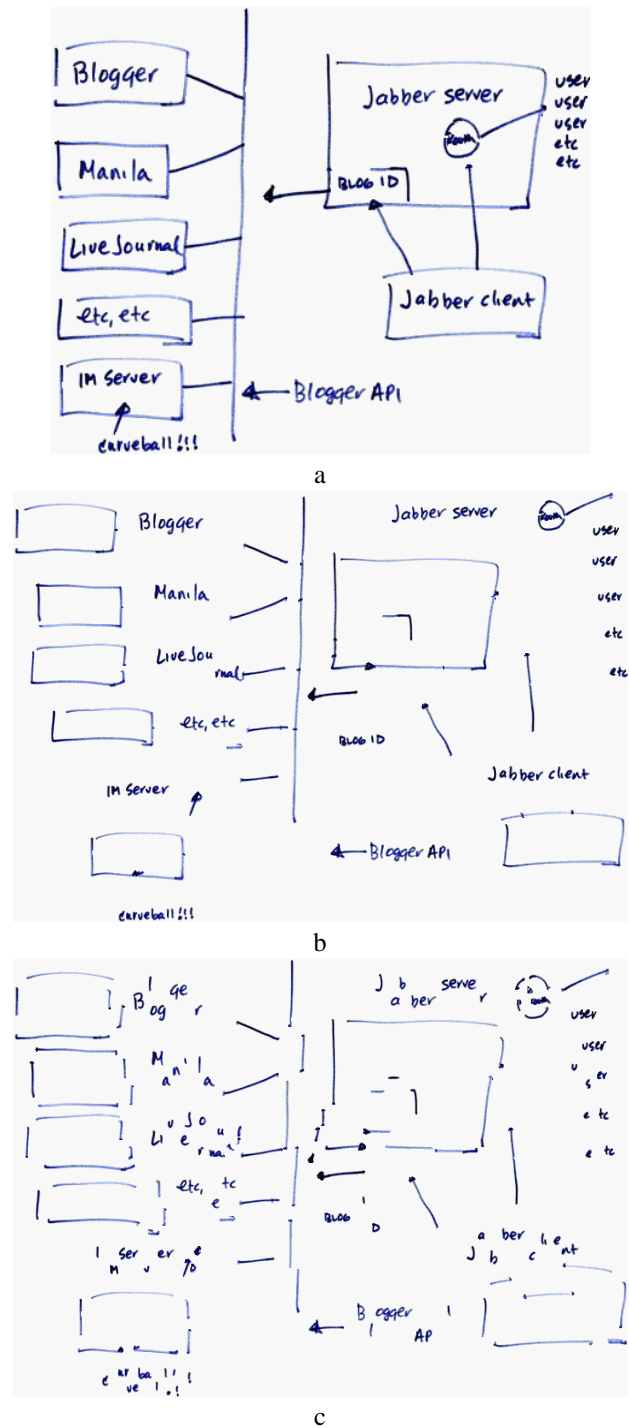 Blogger
Manila
LiveJournal
etc, etc
IM Server
curveball!!!
Jabber server
Room
user
user
user
etc
etc
BLOG ID
Jabber client
Blogger API
a
Blogger
Manila
LiveJou
rnal
etc, etc
IM Server
curveball!!!
Jabber server
Room
user
user
user
etc
etc
BLOG ID
Jabber client
Blogger API
b
Blogger
Manila
LiveJournal
etc, etc
Jabber server
user
user
user
etc
etc
BLOG ID
Jabber client
Blogger API
c